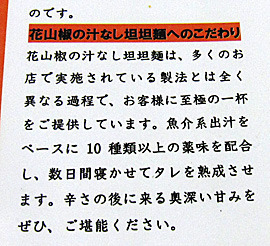 のです。
花山椒の汁なし坦坦麺へのこだわり
花山椒の汁なし坦坦麺は、多くのお
店で実施されている製法とは全く
異なる過程で、お客様に至極の一杯
をご提供しています。魚介系出汁を
ベースに 10 種類以上の薬味を配合
し、数日間寝かせてタレを熟成させ
ます。辛さの後に来る奥深い甘みを
ぜひ、ご堪能ください。